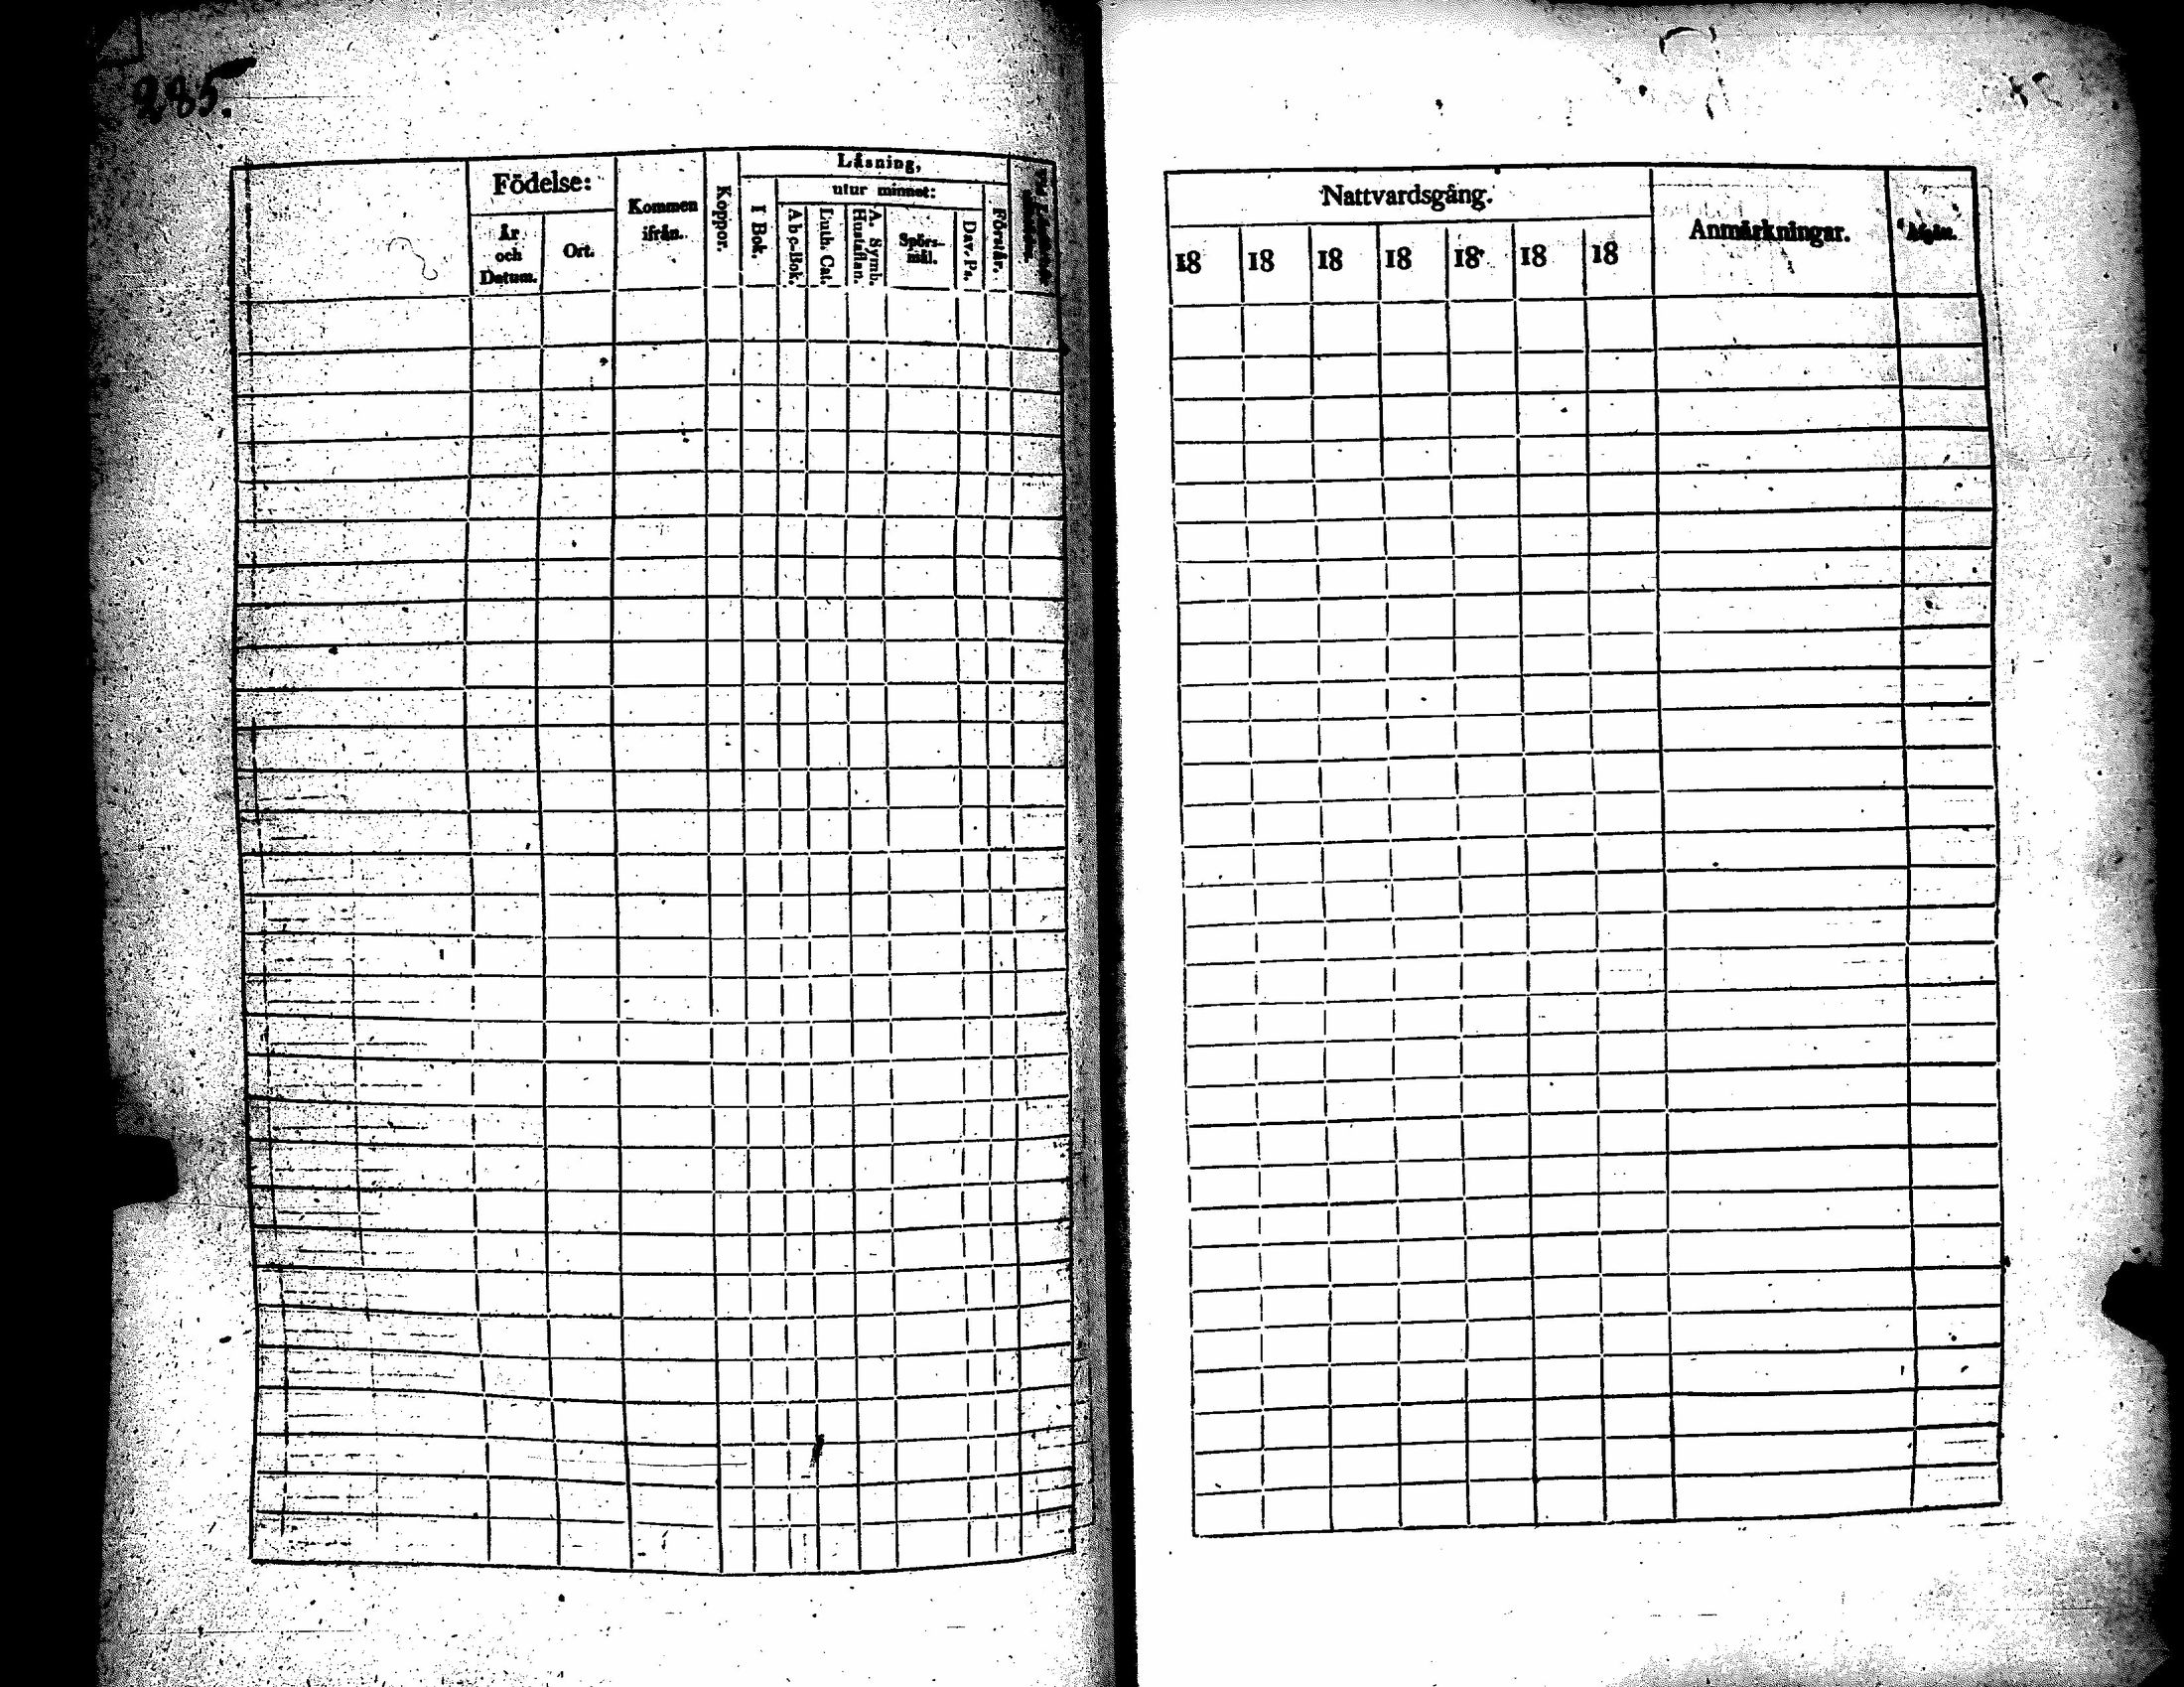 285.
Födelse:
År och Datum.
Ort.
Kommen ifrån.
Koppor.
Läsning,
I Bok.
utur minnet:
Abc-Bok.
Luth. Cat.
A. Symb. Hustaflan.
Spörsmål.
Dav. Ps.
Förstår.
Nattvardsgång.
18 18 18 18 18 18 18
Anmärkningar.